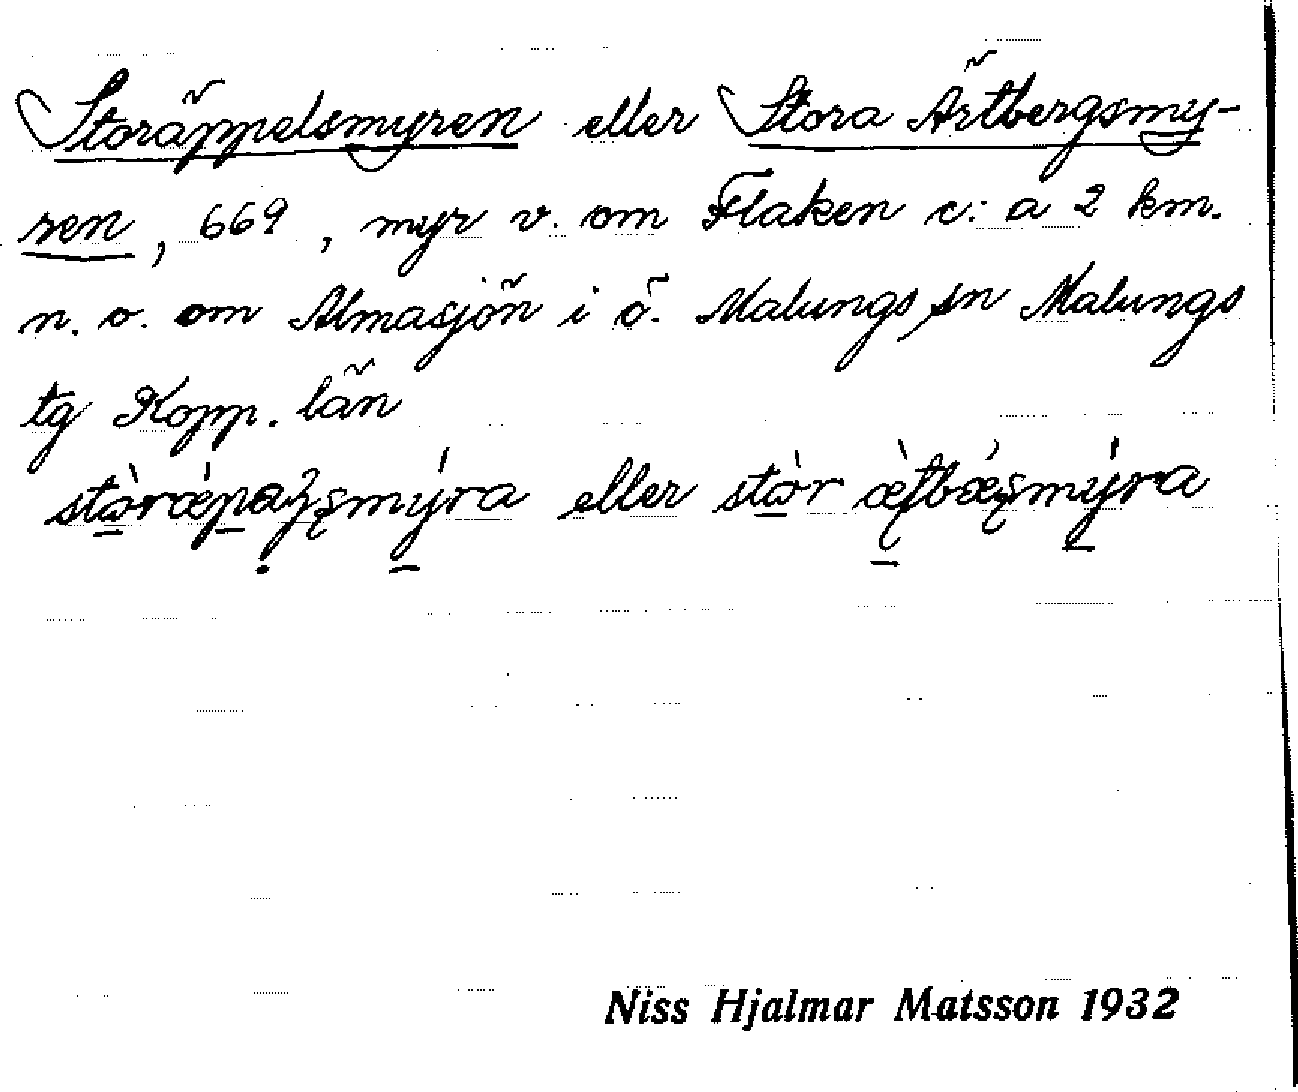 Storäppelsmyren eller Stora Ärtbergsmy-
ren, 669, myr v. om Flaken c:a 2 km.
n. o. om Almasjön i ö. Malungs sn Malungs
tg Kopp. län
eller
Niss Hjalmar Matsson 1932